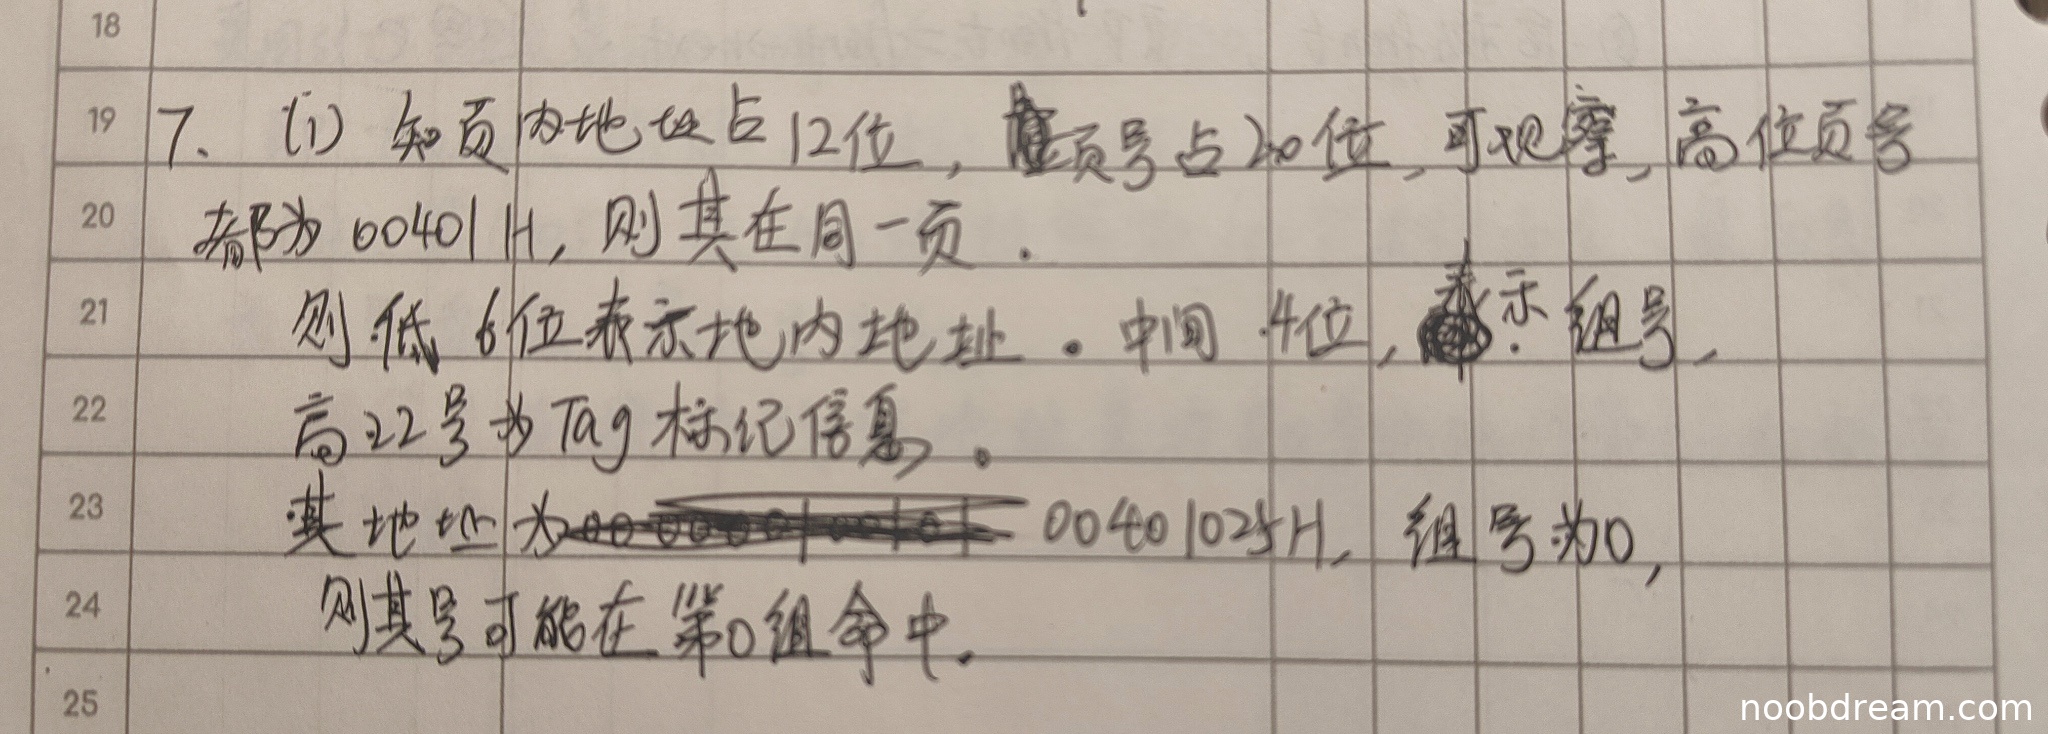 18
19 7. (1) 知页内地址占12位, 页号占20位, 可观察, 高位页号
20 都为 00401H, 则其在同一页.
21 则低6位表示地内地址. 中间4位, 表示组号,
22 高22号为Tag标记信息.
23 其地址为 00401025H, 组号为0,
24 则其号可能在第0组命中.
25
noobdream.com